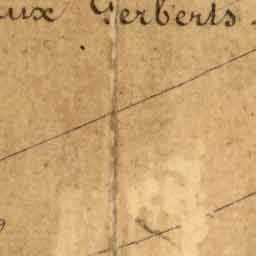 aux Gerberts